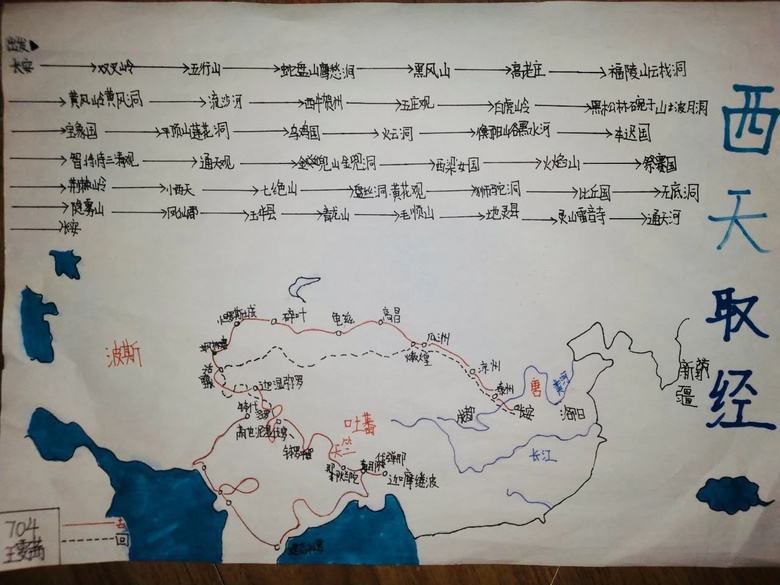 西天取经
出发
长安 双叉岭 五行山 蛇盘山鹰愁涧 黑风山 高老庄 福陵山云栈洞
黄风岭黄风洞 流沙河 西牛贺州 五庄观 白虎岭 黑松林碗子山波月洞
宝象国 平顶山莲花洞 乌鸡国 火云洞 黑水河 车迟国
三清观 通天观 金兜山金兜洞 西梁女国 火焰山 祭赛国
荆棘岭 小西天 七绝山 盘丝洞 黄花观 狮驼洞 比丘国 无底洞
隐雾山 凤仙郡 玉华县 青龙山 毛颖山 地灵县 灵山雷音寺 通天河
长安
碎叶
龟兹
高昌
瓜洲
敦煌
凉州
秦州
长安
洛阳
成都
唐
黄河
长江
新羅
疆
波斯
吐蕃
天竺
活国
迦湿弥罗
迦摩缕波
704
王雯茜
去
回